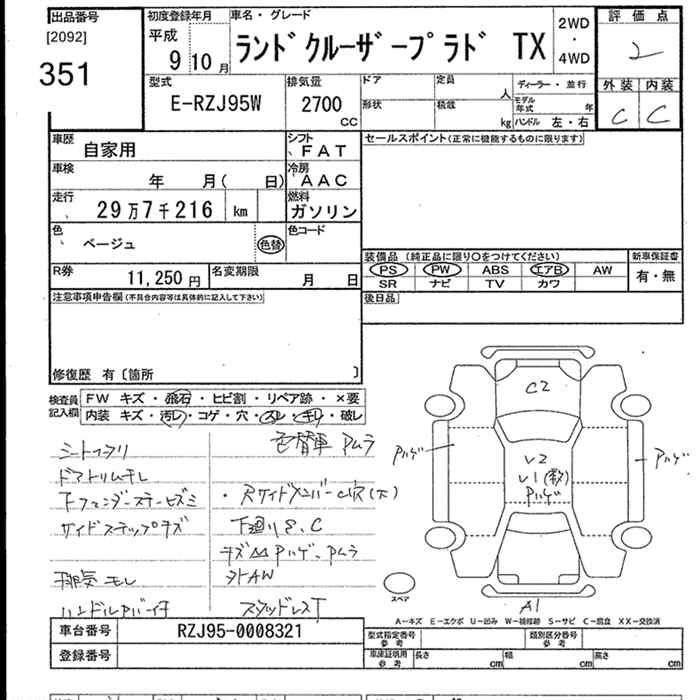 出品番号 初度登録年月 車名・グレード 2WD ・ 4WD 評価点
[2092] 平成
351 9 10月 ランドクルーザープラド TX 2
型式 排気量 ドア 定員 人 ディーラー・並行 外装 内装
E-RZJ95W 2700 CC 形状 積載 kg モデル年式 年 C C
ハンドル 左・右
車歴 自家用 シフト FAT セールスポイント(正常に機能するものに限ります)
車検 年 月( 日) 冷房 AAC
走行 29万7千216 km 燃料 ガソリン
色 ベージュ 色替 色コード
装備品 (純正品に限り○をつけてください) 新車保証書
PS PW ABS エアB AW 有・無
SR ナビ TV カワ
R券 11,250円 名変期限 月 日
後日品
注意事項申告欄(不具合内容等は具体的に記入して下さい)
修復歴 有〔箇所 〕
検査員記入欄 FW キズ・飛石・ヒビ割・リペア跡・×要
内装 キズ・汚レ・コゲ・穴・スレ・キレ・破レ
色替車 アムラ
ドアトリムキレ
サイドステップキズ
下廻りS.C
排気モレ
スタッドレスT
C2
V2
V1(数)
Pハゲ
Pハゲ
Pハゲ
A1
スペア
A-キズ E-エクボ U-凹み W-補修跡 S-サビ C-腐食 XX-交換済
車台番号 RZJ95-0008321 型式指定番号 参考 類別区分番号 参考
登録番号 車庫証明用 参考 長さ cm 幅 cm 高さ cm